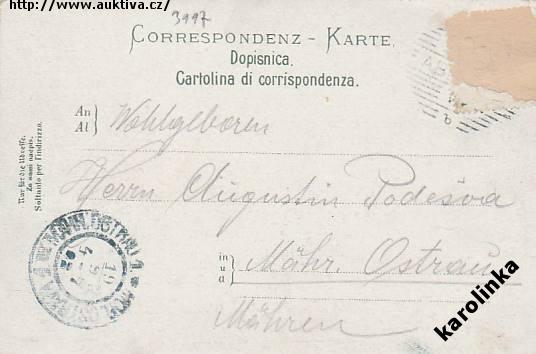 http://www.auktiva.cz/
3997
CORRESPONDENZ - KARTE.
Dopisnica.
Cartolina di corrispondenza.
An
Al
Wohlgeboren
Herrn Augustin Podešva
in
ud
Mähr. Ostrau
Mähren
Nur für die Adresse.
Za sami napis.
Soltanto per l'indirizzo.
MÄHR. OSTRAU 1
karolinka